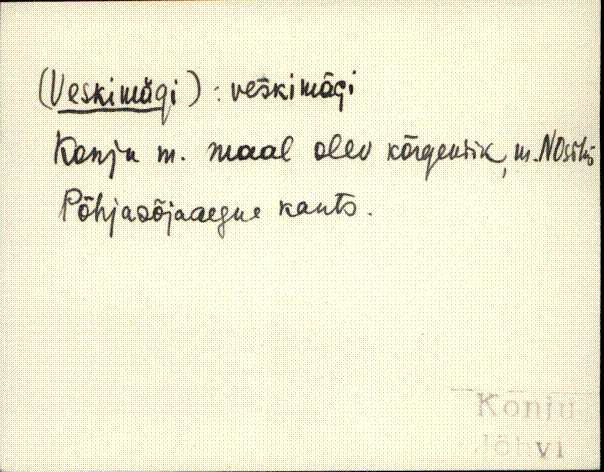 (Veskimägi) : veskimägi
Konju m. maal olev kõrgendik, m. NOsihis
Põhjasõjaaegne kants.
Konju
Jõhvi